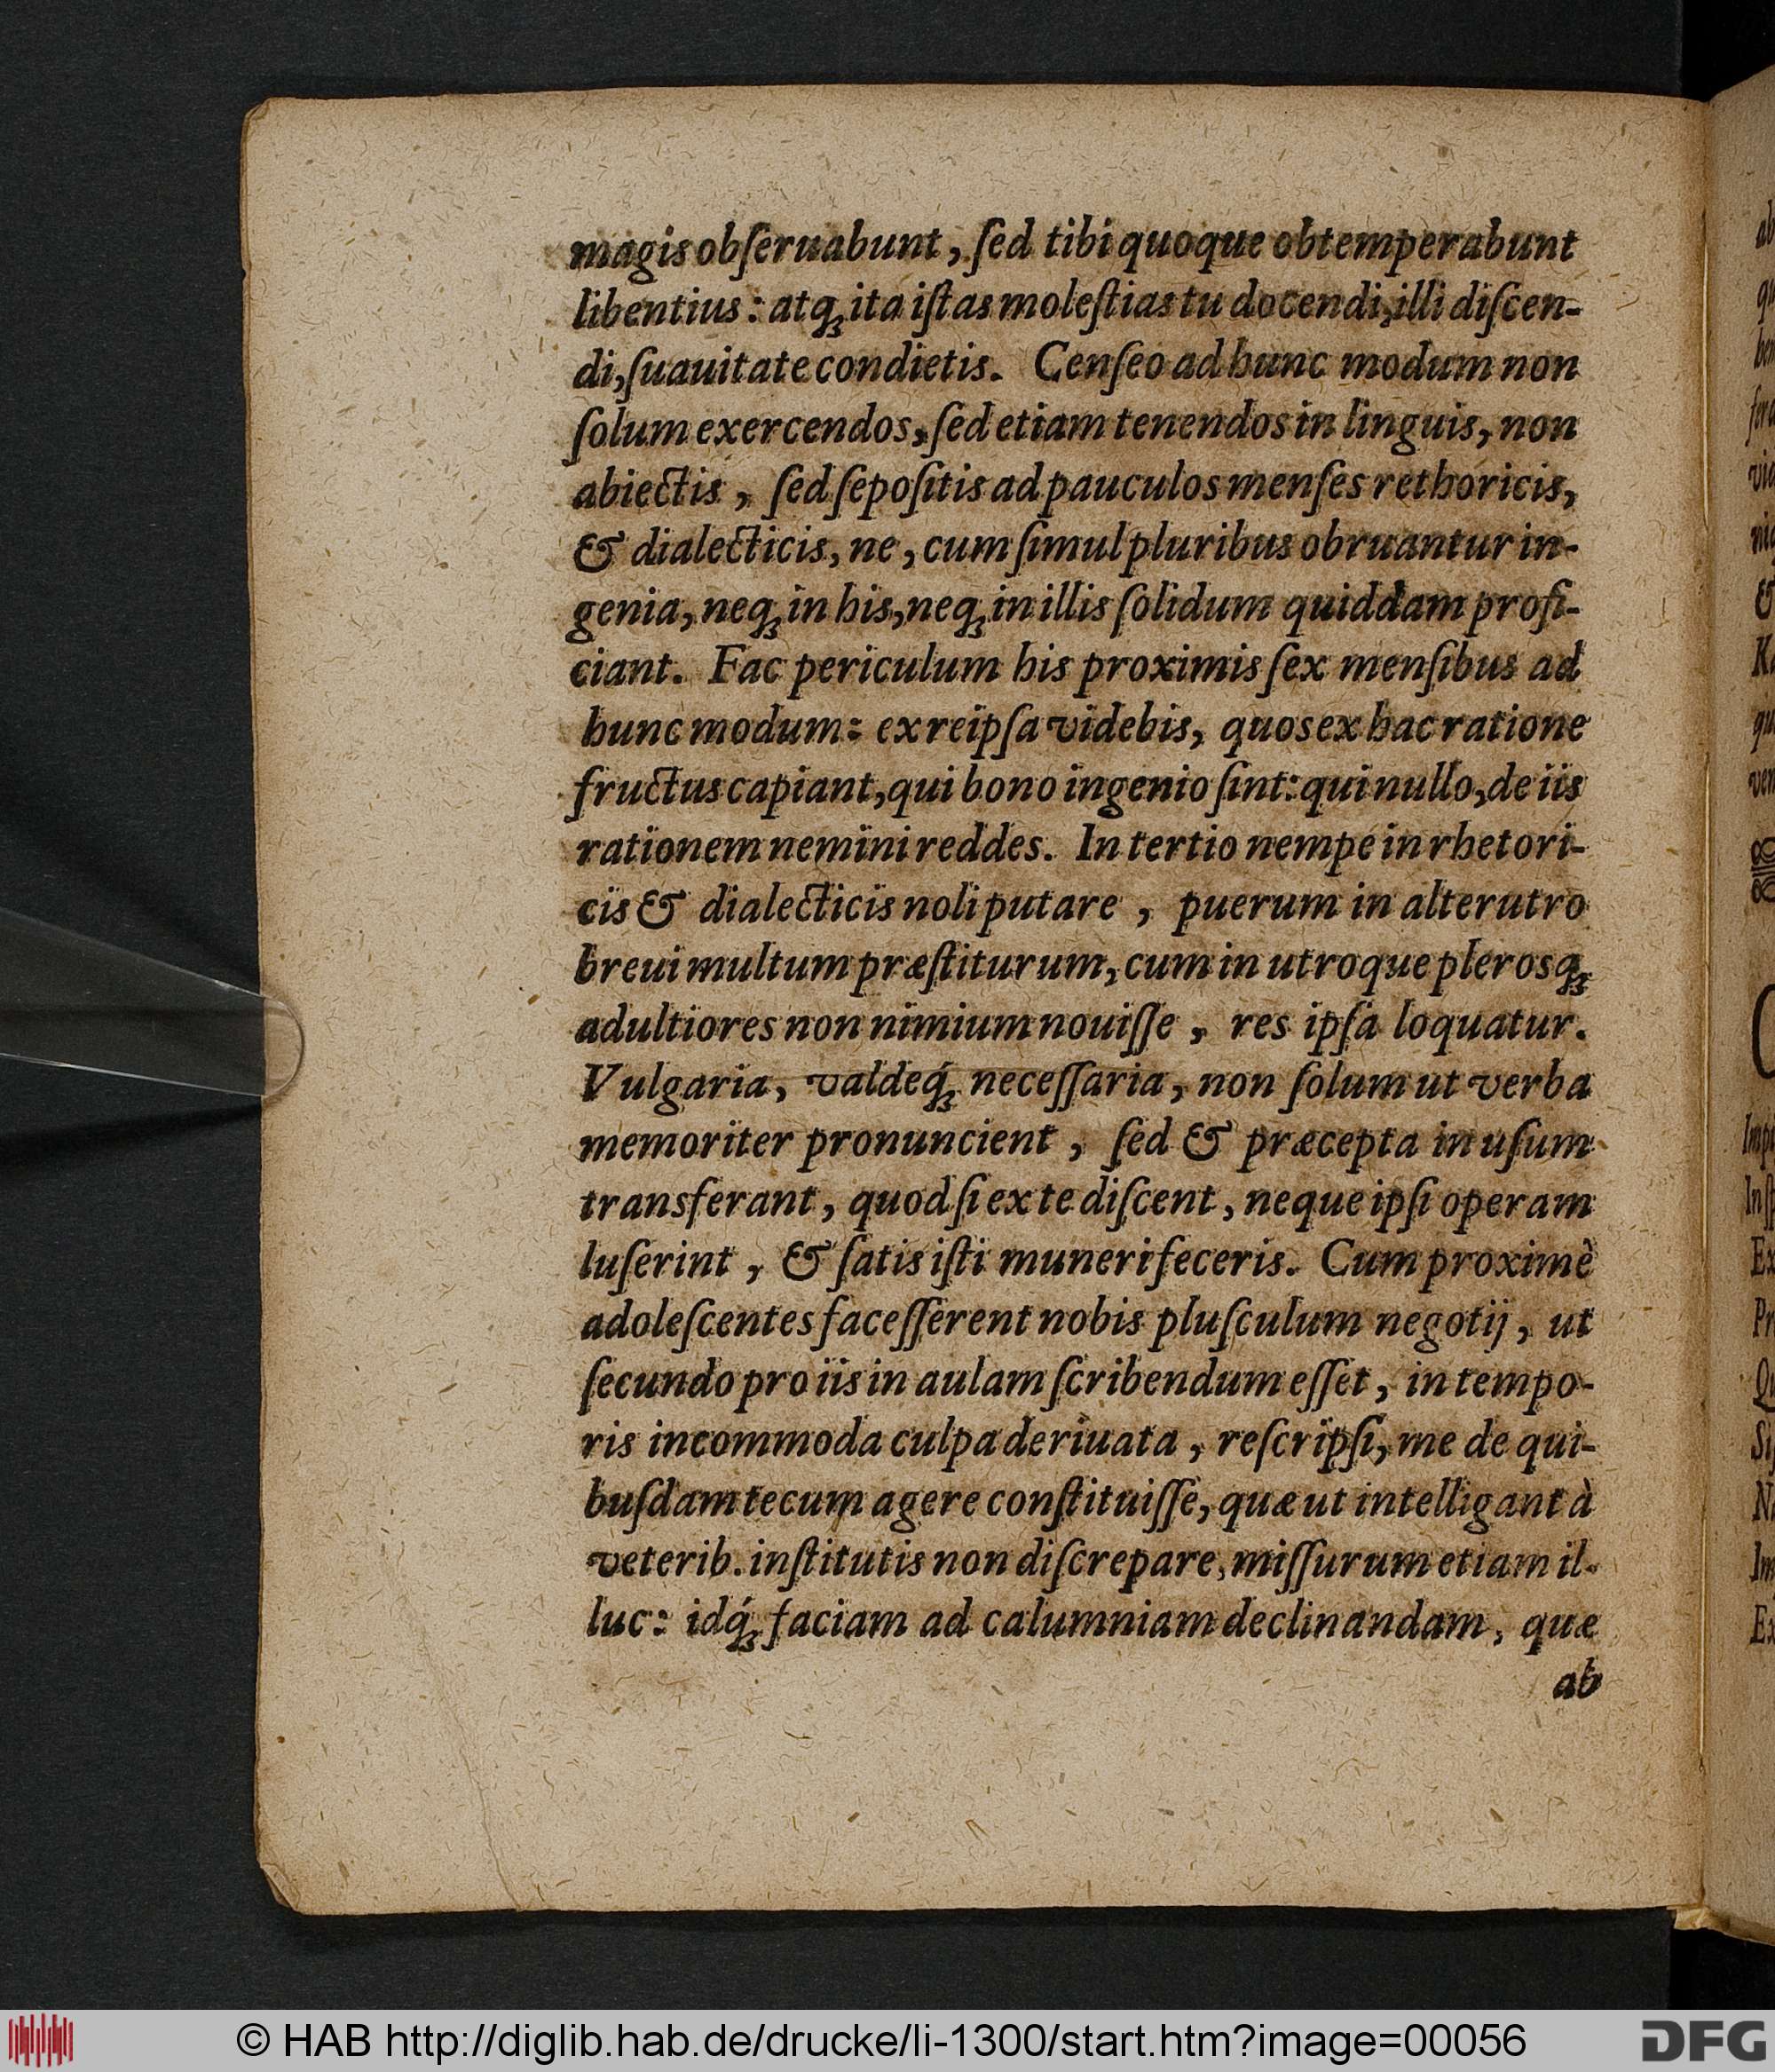 magis obſeruabunt, ſed tibi quoque obtemperabunt
libentius: atq́ꝫ ita iſtas moleſtias tu docendi, illi diſcen-
di, ſuauitate condietis. Cenſeo ad hunc modum non
ſolum exercendos, ſed etiam tenendos in linguis, non
abiectis, ſed ſepoſitis ad pauculos menſes rethoricis,
& dialecticis, ne, cum ſimul pluribus obruantur in-
genia, neqꝫ in his, neqꝫ in illis ſolidum quiddam profi-
ciant. Fac periculum his proximis ſex menſibus ad
hunc modum: ex reipſa videbis, quos ex hac ratione
fructus capiant, qui bono ingenio ſint: qui nullo, de iis
rationem nemini reddes. In tertio nempe in rhetori-
cis & dialecticis noli putare, puerum in alterutro
breui multum præſtiturum, cum in utroque plerosqꝫ
adultiores non nimium nouiſſe, res ipſa loquatur.
Vulgaria, valdeq́ꝫ neceſſaria, non ſolum ut verba
memoriter pronuncient, ſed & præcepta in uſum
transferant, quod ſi ex te diſcent, neque ipſi operam
luſerint, & ſatis iſti muneri feceris. Cum proximè
adoleſcentes faceſſerent nobis pluſculum negotij, ut
ſecundo pro iis in aulam ſcribendum eſſet, in tempo-
ris incommoda culpa deriuata, reſcripſi, me de qui-
buſdam tecum agere conſtituiſſe, quæ ut intelligant à
veterib. inſtitutis non diſcrepare, miſſurum etiam il-
luc: idq́ꝫ faciam ad calumniam declinandam, quæ
ab
© HAB http://diglib.hab.de/drucke/li-1300/start.htm?image=00056
DFG